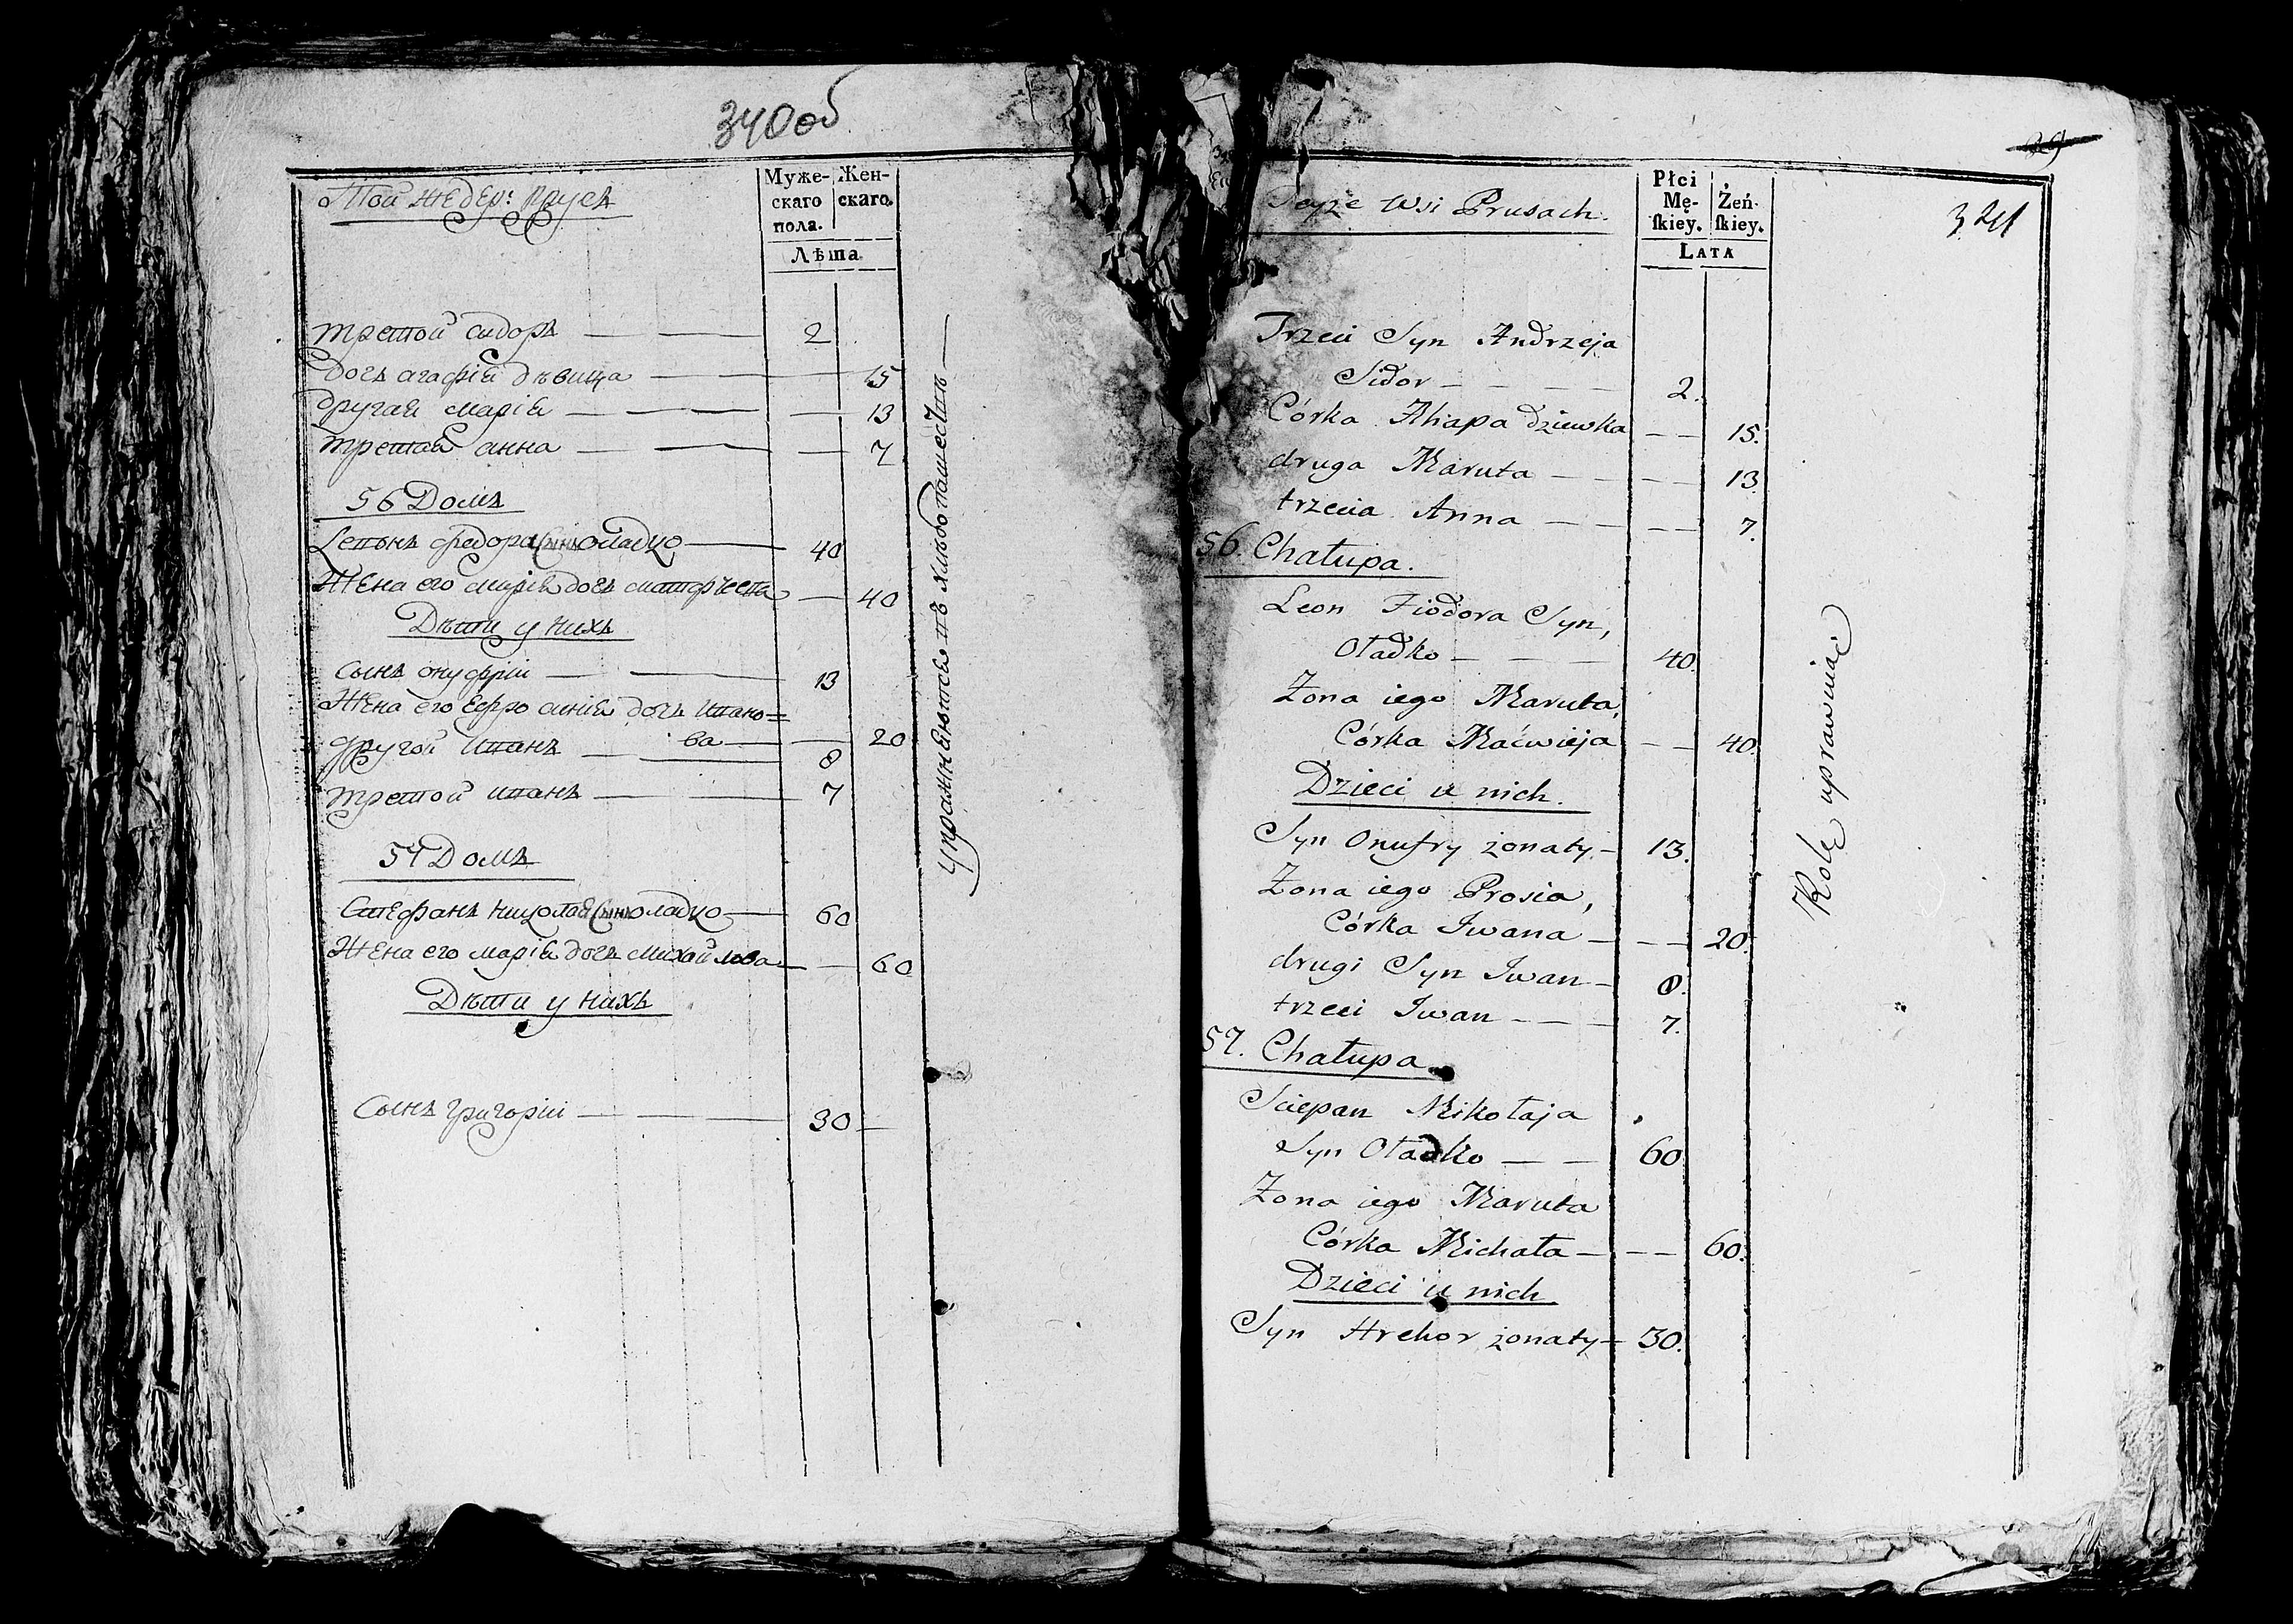 340об
Той же дер: Прусъ
Муже-
скаго
пола.
Жен-
скаго.
Лѣта
третой сидоръ — — 2
дочь агафiя дѣвица — — 15
другая марiя — — 13
третая анна — — 7
56 Домъ
федора сынъ оладко — 40
Жена его марiя дочь — 40
Дѣти у нихъ
сынъ онуфрiй — — 13
Жена его Ефросинiя дочь ивано=
ва — — 20
другой иванъ — 8
третой иванъ — — 7
57 Домъ
Стефанъ николая сынъ оладко — 60
Жена его марiя дочь михайлова — — 60
Дѣти у нихъ
Сынъ григорiй — — 30
упражняются въ хлѣбопашествѣ —
29
341
Teyże Wsi Prusach.
Płci
Mę-
ſkiey.
Żeń-
ſkiey.
LATA
Trzeci Syn Andrzeja
Sidor — — — 2.
Córka Ahapa dziewka — — 15.
druga Maruta — — — 13.
trzecia Anna — — — 7.
56. Chałupa.
Leon Fiodora Syn,
Oładko — — — 40.
Żona iego Maruta,
Córka Maćwieja — — 40.
Dzieci u nich.
Syn Onufry żonaty — 13.
Żona iego Prosia,
Córka Iwana — — — 20.
drugi Syn Iwan — 8.
trzeci Iwan — — — 7.
57. Chałupa.
Sciepan Mikołaja
Syn Oładko — — 60.
Żona iego Maruta
Córka Michała — — — 60.
Dzieci u nich
Syn Hrehor żonaty — 30.
Rolę uprawniać